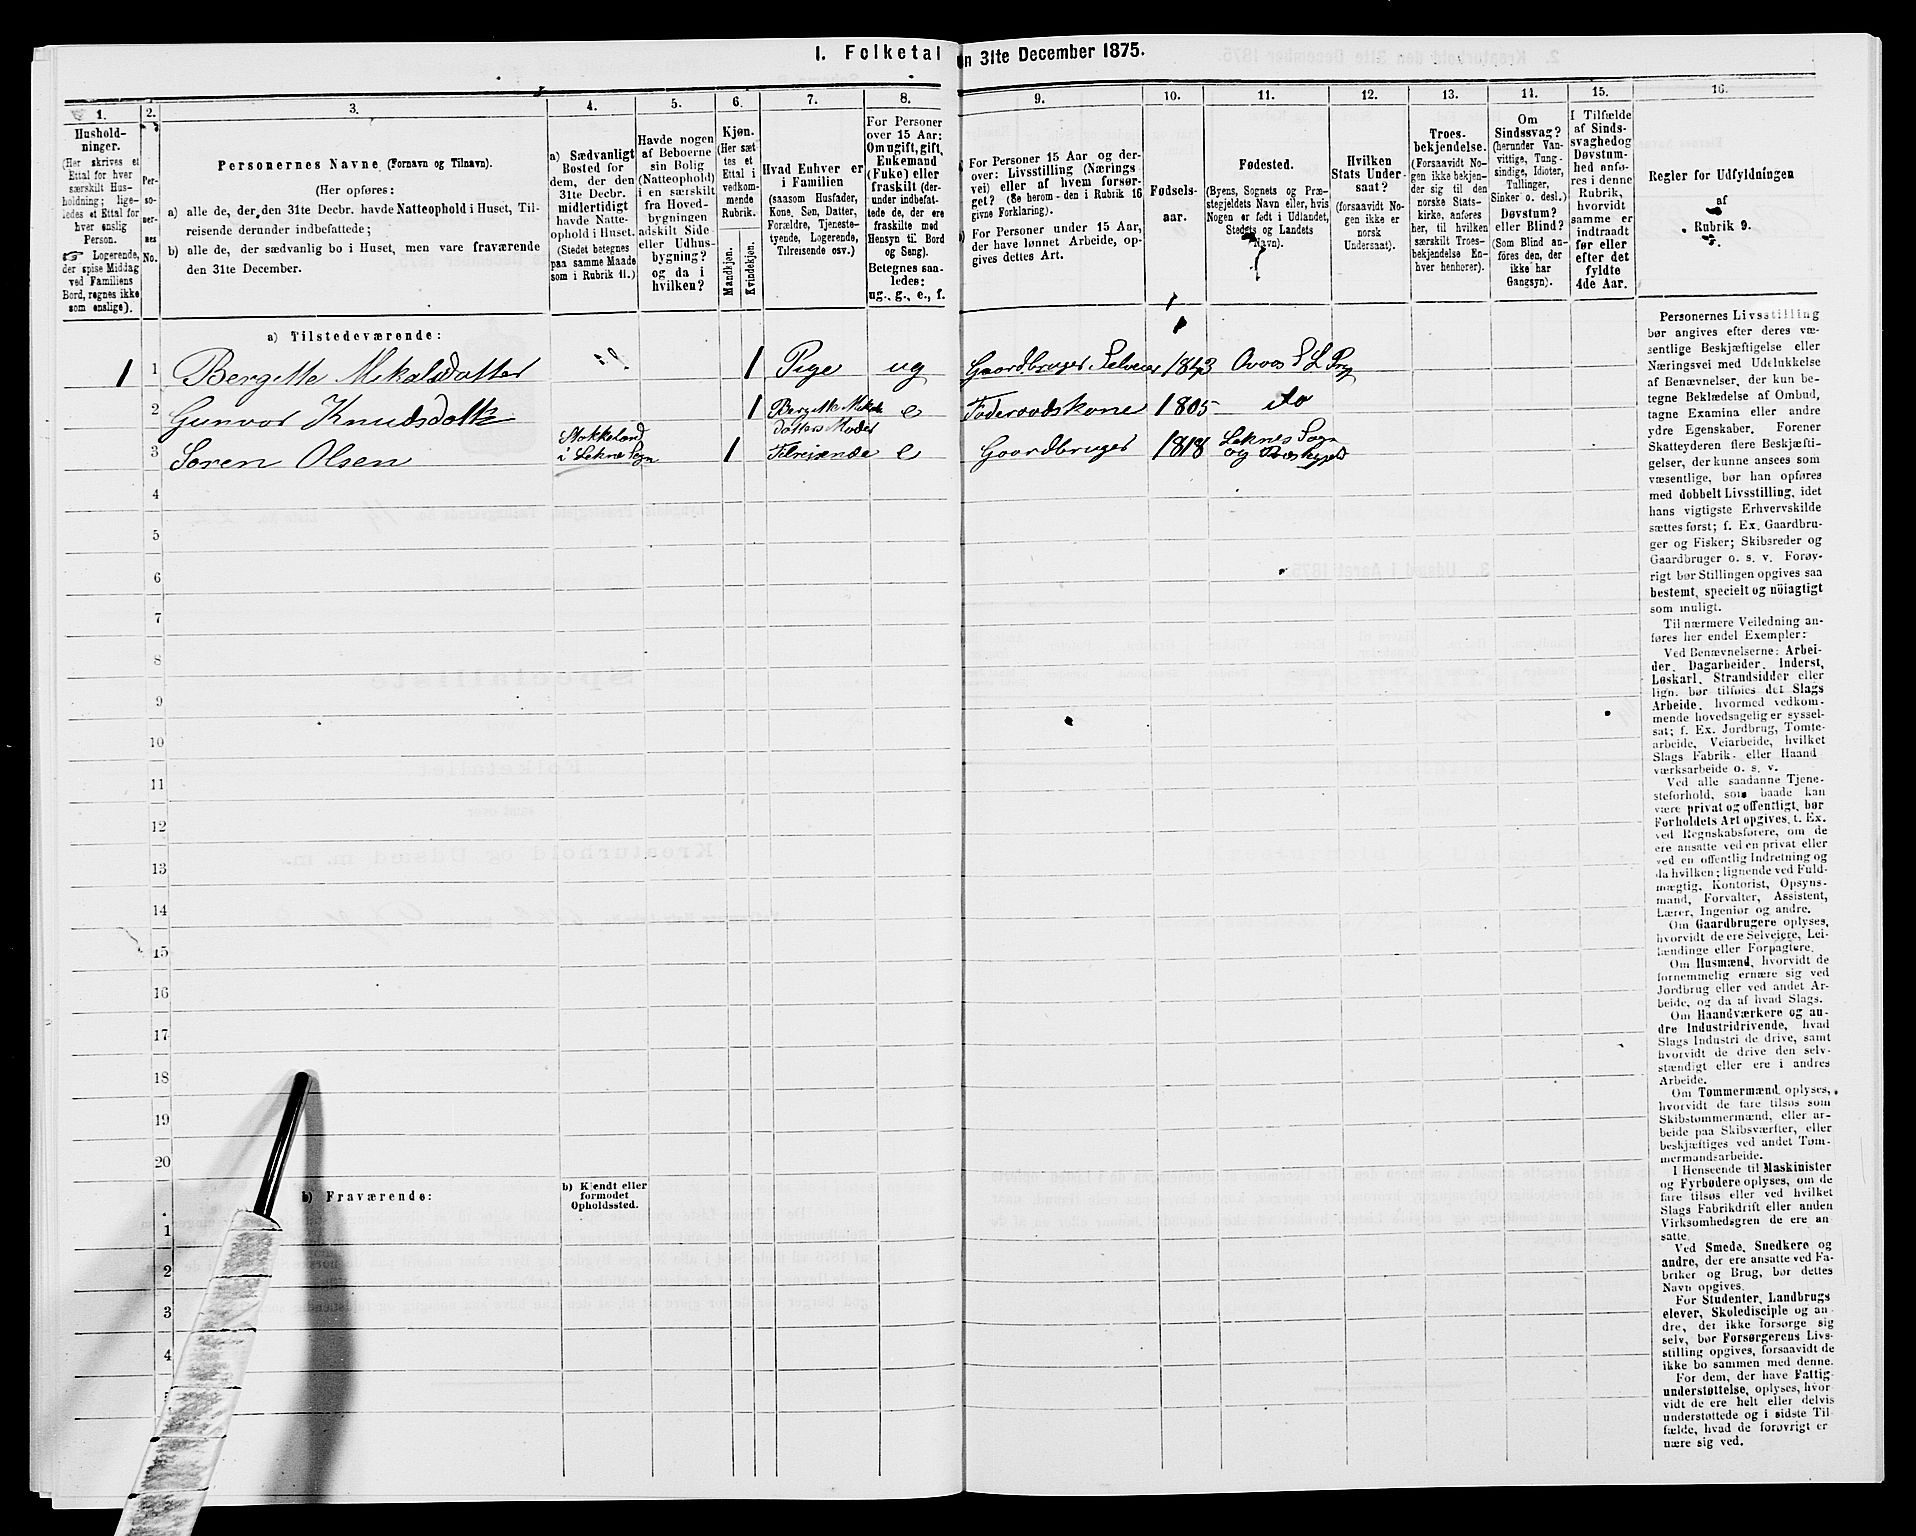 1. Folketal
en 31te December 1875.
1.
2.
3.
4.
5.
6.
7.
8.
9.
10.
11.
12.
13.
14.
15.
16.
Hushold-
ninger.
(Her skrives et
Ettal for hver
særskilt Hus-
holdning; lige-
ledes et Ettal for
hver enslig
Person.
☞ Logerende,
der spise Middag
ved Familiens
Bord, regnes ikke
som enslige).
Per-
so-
ner-
nes
No.
Personernes Navne (Fornavn og Tilnavn).
(Her opføres:
a) alle de, der den 31te Decbr. havde Natteophold i Huset, Til-
reisende derunder indbefattede;
b) alle de, der sædvanlig bo i Huset, men vare fraværende
den 31te December.
a) Sædvanligt
Bosted for
dem, der den
31te Decbr.
midlertidigt
havde Natte-
ophold i Huset.
(Stedet betegnes
paa samme Maade
som i Rubrik 11.)
Havde nogen
af Beboerne
sin Bolig
(Natteophold)
i en særskilt
fra Hoved-
bygningen
adskilt Side-
eller Udhus-
bygning?
og da i
hvilken?
Kjøn.
(Her sæt-
tes et
Ettal i
vedkom-
mende
Rubrik.
Mandkjøn.
Kvindekjøn.
Hvad Enhver er
i Familien
(saasom Husfader,
Kone, Søn, Datter,
Forældre, Tjeneste-
tyende, Logerende,
Tilreisende osv.)
For Personer
over 15 Aar:
Om ugift, gift,
Enkemand
(Enke) eller
fraskilt (der-
under indbefat-
tede de, der ere
fraskilte med
Hensyn til Bord
og Seng).
Betegnes saa-
ledes:
ug., g., e., f.
For Personer 15 Aar og der-
over: Livsstilling (Nærings
vei) eller af hvem forsør-
get? (Se herom den i Rubrik 16
givne Forklaring).
For Personer under 15 Aar,
der have lønnet Arbeide, op-
gives dettes Art.
Fødsels-
aar.
Fødested.
(Byens, Sognets og Præ-
stegjeldets Navn eller, hvis
Nogen er født i Udlandet,
Stedets og Landets
Navn).
Hvilken
Stats Under-
saat?
(forsaavidt No-
gen ikke er
norsk
Undersaat).
Troes-
bekjendelse.
(Forsaavidt No-
gen ikke bekjen-
der sig til den
norske Stats-
kirke, anføres
her, til hvilken
særskilt Troes-
bekjendelse En-
hver henhører).
Om
Sindssvag?
(herunder Van-
vittige, Tung-
sindige, Idioter,
Tullinger,
Sinker o. desl.)
Døvstum?
eller Blind?
(Som Blind an-
føres den, der
ikke har
Gangsyn).
I Tilfælde
af Sinds-
svaghed og
Døvstum-
hed anfø-
res i denne
Rubrik,
hvorvidt
samme er
indtraadt
før eller
efter det
fyldte
4de Aar.
Regler for Udfyldningen
af
Rubrik 9.
a) Tilstedeværende:
1 1 Bergitte Mikalsdatter 1 Pige ug Gaardbruger Selveier 1843
2 Gunvor Knudsdatter 1 Bergitte Mikals
datters Moder e Føderaadskone 1805 do
3 Søren Olsen Stokkeland
i Leknes Sogn 1 Tilreisende e Gaardbruger 1818 Leknes Sogn
og
4
5
6
7
8
9
10
11
12
13
14
15
16
17
18
19
20
b) Fraværende:
b) Kjendt eller
formodet
Opholdssted.
1
2
3
4
5
Personernes Livsstilling
bør angives efter deres væ-
sentlige Beskjæftigelse eller
Næringsvei med Udelukkelse
af Benævnelser, der kun be-
tegne Beklædelse af Ombud,
tagne Examina eller andre
ydre Egenskaber. Forener
Skatteyderen flere Beskjæfti-
gelser, der kunne ansees som
væsentlige, bør han opføres
med dobbelt Livsstilling, idet
hans vigtigste Erhvervskilde
sættes først; f. Ex. Gaardbru-
ger og Fisker; Skibsreder og
Gaardbruger o. s. v. Forøv-
rigt bør Stillingen opgives saa
bestemt, specielt og nöiagtigt
som muligt.
Til nærmere Veiledning an-
føres her endel Exempler:
Ved Benævnelserne: Arbei-
der, Dagarbeider, Inderst,
Løskarl, Strandsidder eller
lign. bør tilføies det Slags
Arbeide, hvormed vedkom-
mende hovedsagelig er syssel-
sat; f. Ex. Jordbrug, Tomte-
arbeide, Veiarbeide, hvilket
Slags Fabrik- eller Haand
værksarbeide o. s. v.
Ved alle saadanne Tjene-
steforhold, som baade kan
være privat og offentligt, bør
Forholdets Art opgives, t. Ex.
ved Regnskabsførere, om de
ere ansatte ved en privat eller
ved en offentlig Indretning og
da hvilken; lignende ved Fuld-
mægtig, Kontorist, Opsyns-
mand, Forvalter, Assistent,
Lærer, Ingeniør og andre.
Om Gaardbrugere oplyses,
hvorvidt de ere Selveiere, Lei-
lændinge eller Forpagtere.
Om Husmænd, hvorvidt de
fornemmelig ernære sig ved
Jordbrug eller ved andet Ar-
beide, og da af hvad Slags.
Om Haandværkere og an-
dre Industridrivende, hvad
Slags Industri de drive, samt
hvorvidt de drive den selv-
stændigt eller ere i andres
Arbeide.
Om Tømmermænd oplyses,
hvorvidt de fare tilsøs som
Skibstømmermænd, eller ar-
beide paa Skibsværfter, eller
beskjæftiges ved andet Tøm-
mermandsarbeide.
I Henseende til Maskinister
og Fyrbødere oplyses, om de
fare tilsøs eller ved hvilket
Slags Fabrikdrift eller anden
Virksomhedsgren de ere an-
satte.
Ved Smede, Snedkere og
andre, der ere ansatte ved Fa-
briker og Brug, bør dettes
Navn opgives.
For Studenter, Landbrugs
elever, Skoledisciple og an-
dre, der ikke forsørge sig
selv, bør Forsørgerens Livs-
stilling opgives, forsaavidt de
ikke bo sammen med denne.
For dem, der have Fattig-
understøttelse, oplyses, hvor-
vidt de ere helt eller delvis
understøttede og i sidste Til-
fælde, hvad de forøvrigt er-
nære sig ved.